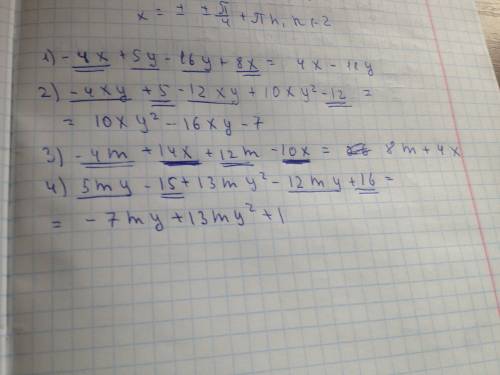 x = ± ± π/4 + πn, n
1) -4x + 5y - 16y + 8x = 4x - 11y
2) -4xy + 5 - 12xy + 10xy² - 12 =
= 10xy² - 16xy - 7
3) -4m + 14x + 12m - 10x = 8m + 4x
4) 5my - 15 + 13my² - 12my + 16 =
= -7my + 13my² + 1